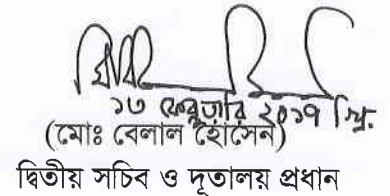 ১৩ ফেব্রুয়ারি ২০১৭ খ্রি.
(মোঃ বেলাল হোসেন)
দ্বিতীয় সচিব ও দূতালয় প্রধান